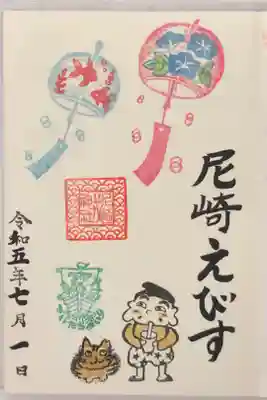 尼崎えびす
令和五年七月一日